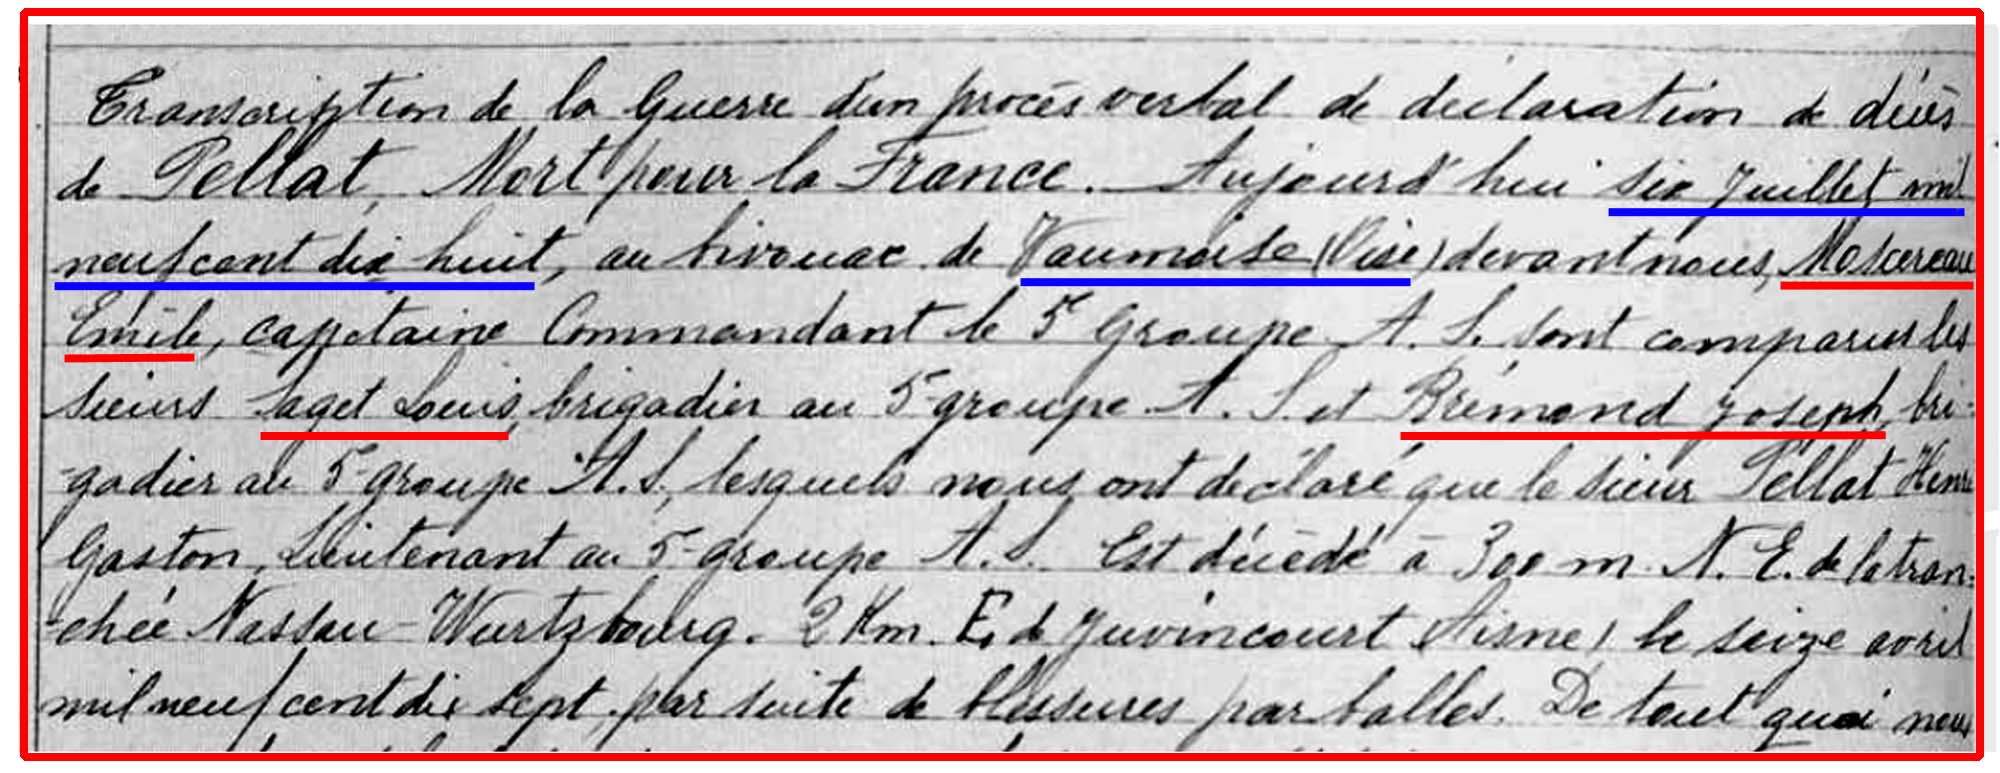 Transcription de la Guerre d'un procès verbal de déclaration de décès
de Pellat, Mort pour la France. Aujourd'hui six Juillet mil
neuf cent dix huit, au bivouac de Vaumoise (Oise) devant nous,
Emile, capitaine Commandant le 5e Groupe A. S. sont comparus les
sieurs Saget Louis, brigadier au 5e groupe A. S. et Brémond Joseph, bri-
-gadier au 5e groupe A. S., lesquels nous ont déclaré que le sieur Pellat Henri
Gaston, Lieutenant au 5e groupe A. S. Est décédé à 300 m. N. E. de la tran-
-chée Nassau-Wurtzbourg. 2 Km. E. de Juvincourt (Aisne) le seize avril
mil neuf cent dix sept, par suite de blessures par balles. De tout quoi nous